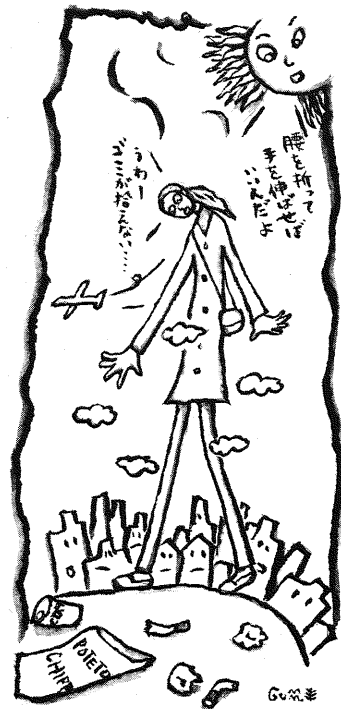 腰を折って
手を伸ばせば
いんだよ
うわー
ゴミが拾えない……
POTETO
CHIPS